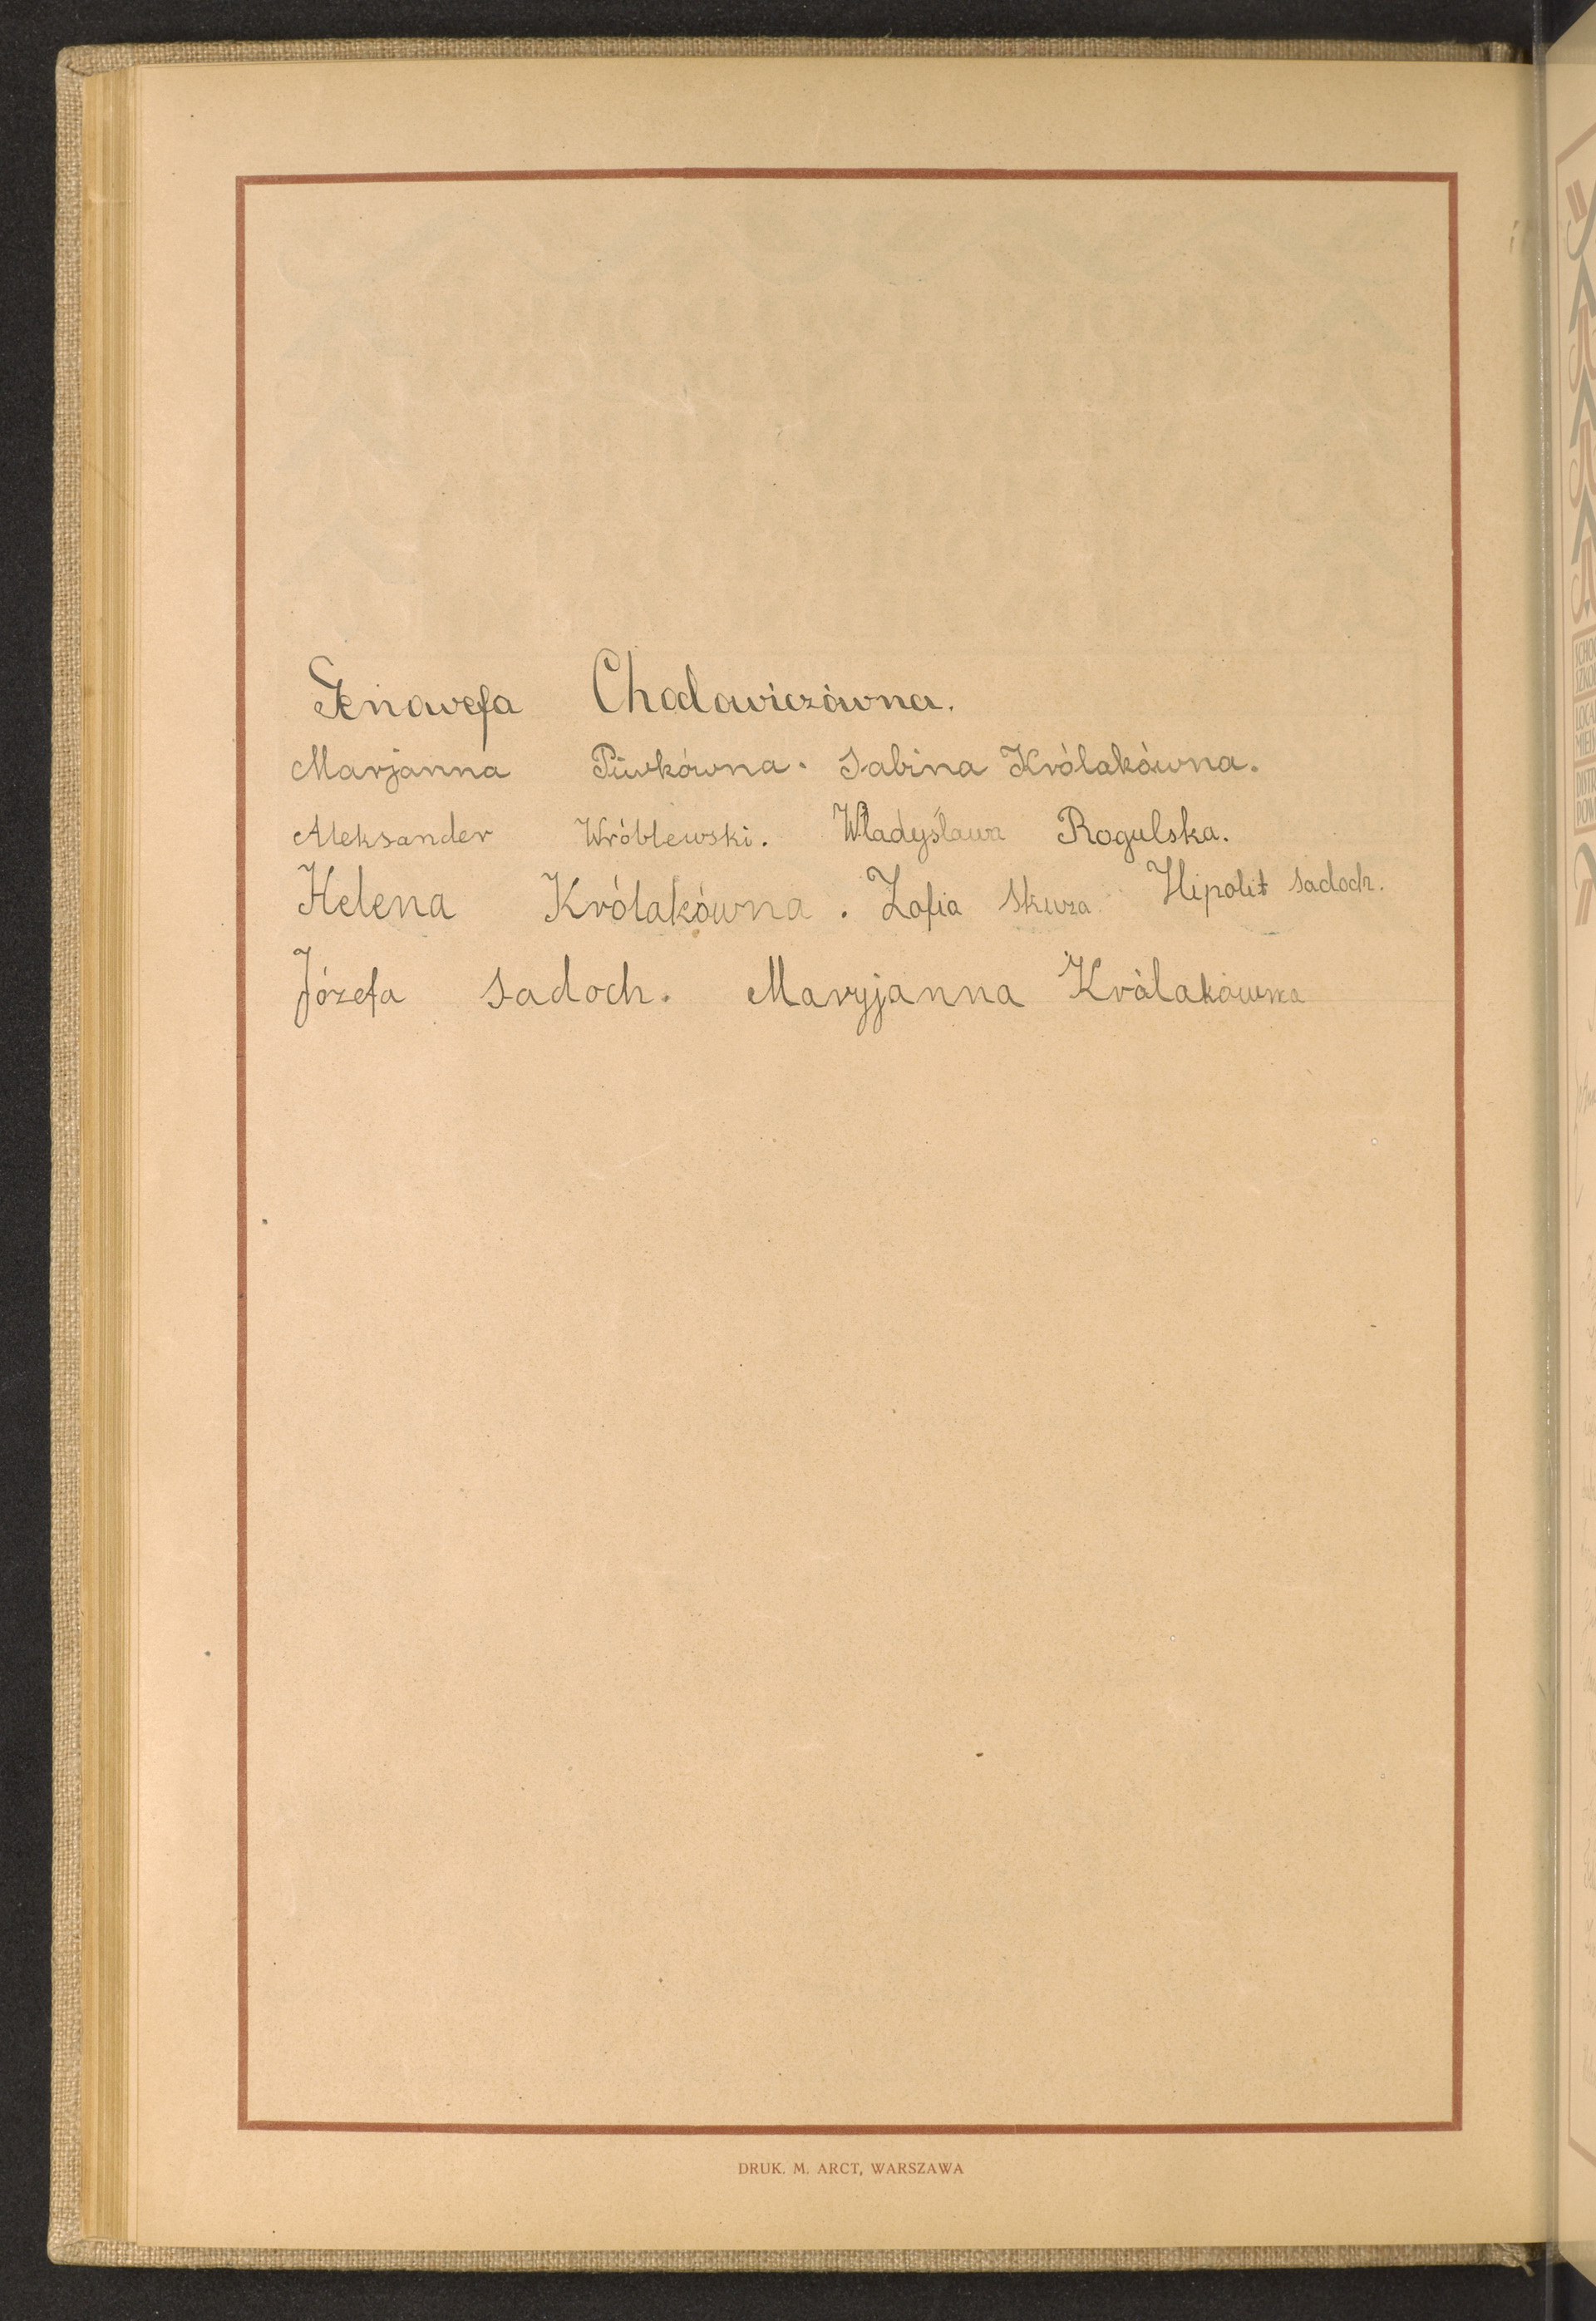 Genowefa Chodowiczówna.
Marjanna Piwkówna. Sabina Królakówna.
Aleksander Wróblewski. Władysława Rogulska.
Helena Królakówna. Zofia Skwza. Hipolit Sadoch.
Józefa Sadoch. Maryjanna Królakówna
DRUK. M. ARCT, WARSZAWA